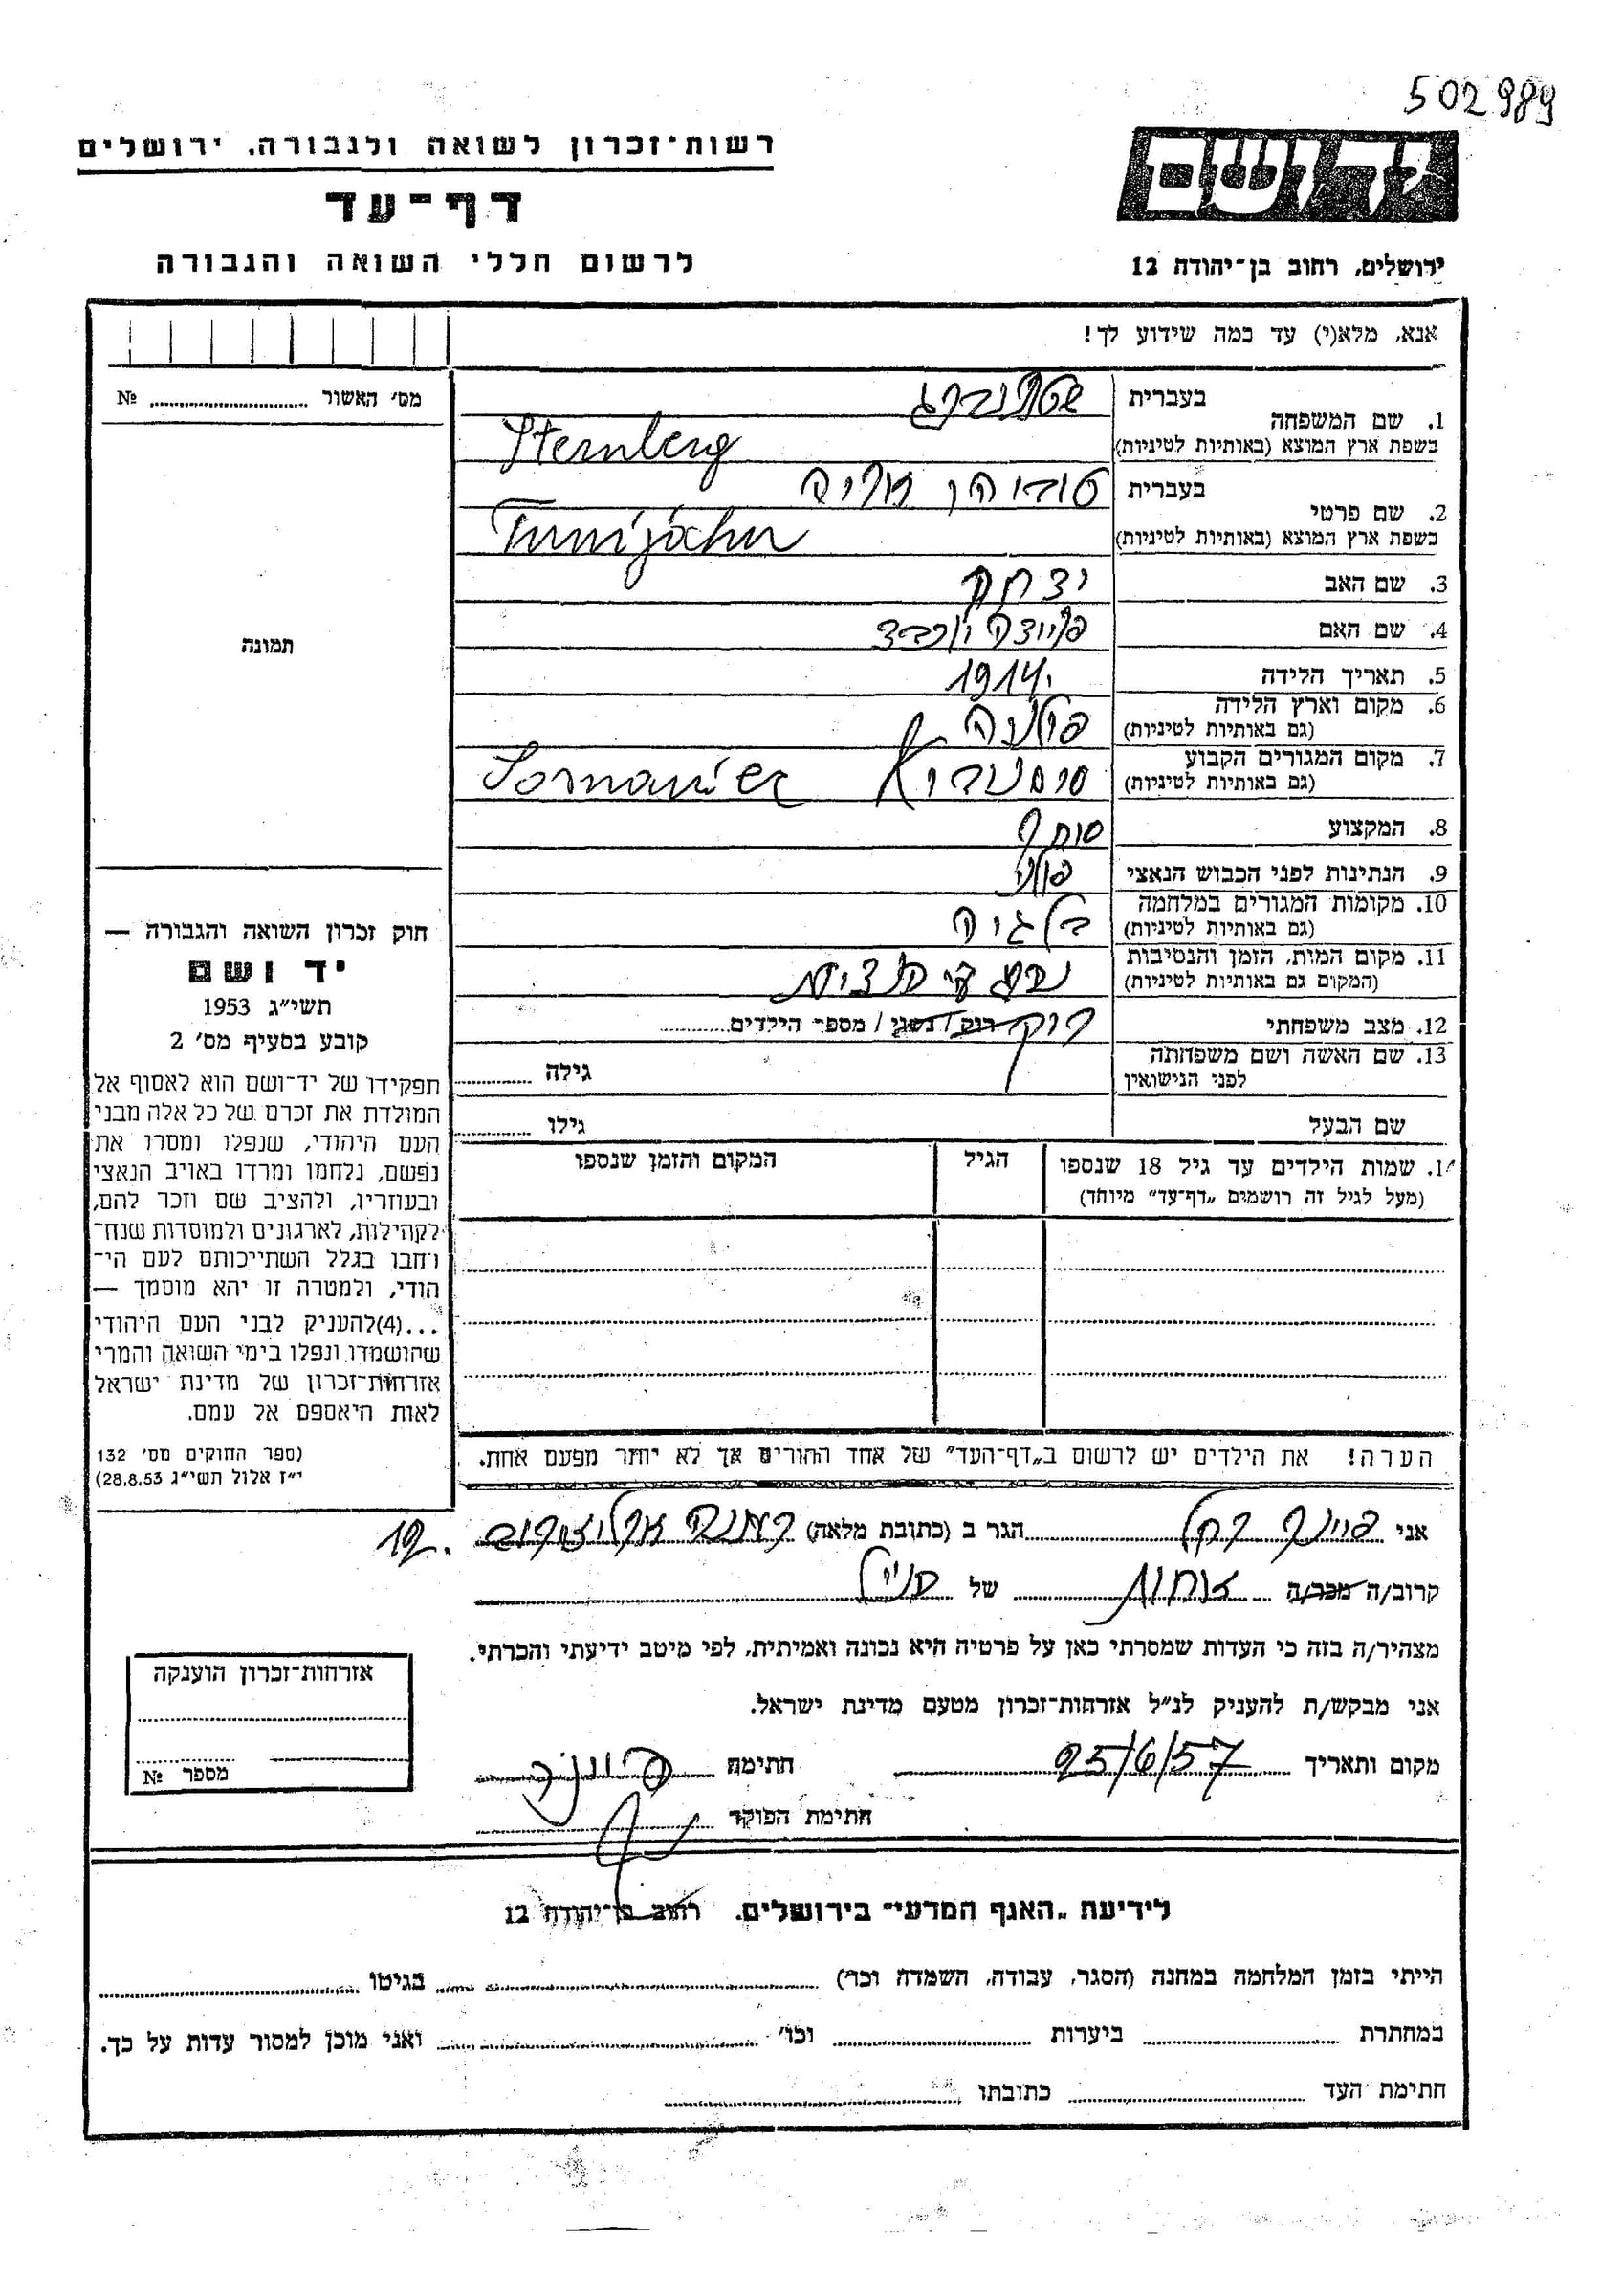 502989
רשות־זכרון לשואה ולגבורה. ירושלים
דף־עד
לרשום חללי השואה והגבורה
ידושם
ירושלים, רחוב בן־יהודה 12
אנא, מלא(י) עד כמה שידוע לך!
מס׳ האשור № ........
תמונה
1. שם המשפחה
בעברית שטרנברג
בשפת ארץ המוצא (באותיות לטיניות) Sternberg
2. שם פרטי
בעברית
בשפת ארץ המוצא (באותיות לטיניות)
3. שם האב יצחק
4. שם האם
5. תאריך הלידה 1914
6. מקום וארץ הלידה
(גם באותיות לטיניות) פולניה
7. מקום המגורים הקבוע
(גם באותיות לטיניות)
8. המקצוע סוחר
9. הנתינות לפני הכבוש הנאצי פולני
10. מקומות המגורים במלחמה
(גם באותיות לטיניות) בלגיה
11. מקום המות, הזמן והנסיבות
(המקום גם באותיות לטיניות)
12. מצב משפחתי רוק רוק/נשוי / מספר הילדים ........
13. שם האשה ושם משפחתה
לפני הנישואין
גילה ........
שם הבעל
גילו ........
14. שמות הילדים עד גיל 18 שנספו
(מעל לגיל זה רושמים „דף־עד״ מיוחד)
הגיל
המקום והזמן שנספו
חוק זכרון השואה והגבורה —
יד ושם
תשי״ג 1953
קובע בסעיף מס׳ 2
תפקידו של יד־ושם הוא לאסוף אל
המולדת את זכרם של כל אלה מבני
העם היהודי, שנפלו ומסרו את
נפשם, נלחמו ומרדו באויב הנאצי
ובעוזריו, ולהציב שם וזכר להם,
לקהילות, לארגונים ולמוסדות שנח־
רחבו בגלל השתייכותם לעם הי־
הודי, ולמטרה זו יהא מוסמך —
...(4)להעניק לבני העם היהודי
שהושמדו ונפלו בימי השואה והמרי
אזרחות־זכרון של מדינת ישראל
לאות היאספם אל עמם.
(ספר החוקים מס׳ 132
י״ז אלול תשי״ג 28.8.53)
הערה! את הילדים יש לרשום ב„דף־העד״ של אחד ההורים אך לא יותר מפעם אחת.
אני הגר ב (כתובת מלאה)
קרוב/ה מכר/ה אחות של
מצהיר/ה בזה כי העדות שמסרתי כאן על פרטיה היא נכונה ואמיתית, לפי מיטב ידיעתי והכרתי.
אני מבקש/ת להעניק לנ״ל אזרחות־זכרון מטעם מדינת ישראל.
מקום ותאריך 25/6/57 חתימה
חתימת הפוקד
אזרחות־זכרון הוענקה
מספר №
לידיעת „האגף המדעי״ בירושלים. רחוב בן־יהודה 12
הייתי בזמן המלחמה במחנה (הסגר, עבודה, השמדה וכו׳) ........ בגיטו ........
במחתרת ........ ביערות ........ וכו׳ ........ ואני מוכן למסור עדות על כך.
חתימת העד ........ כתובתו ........